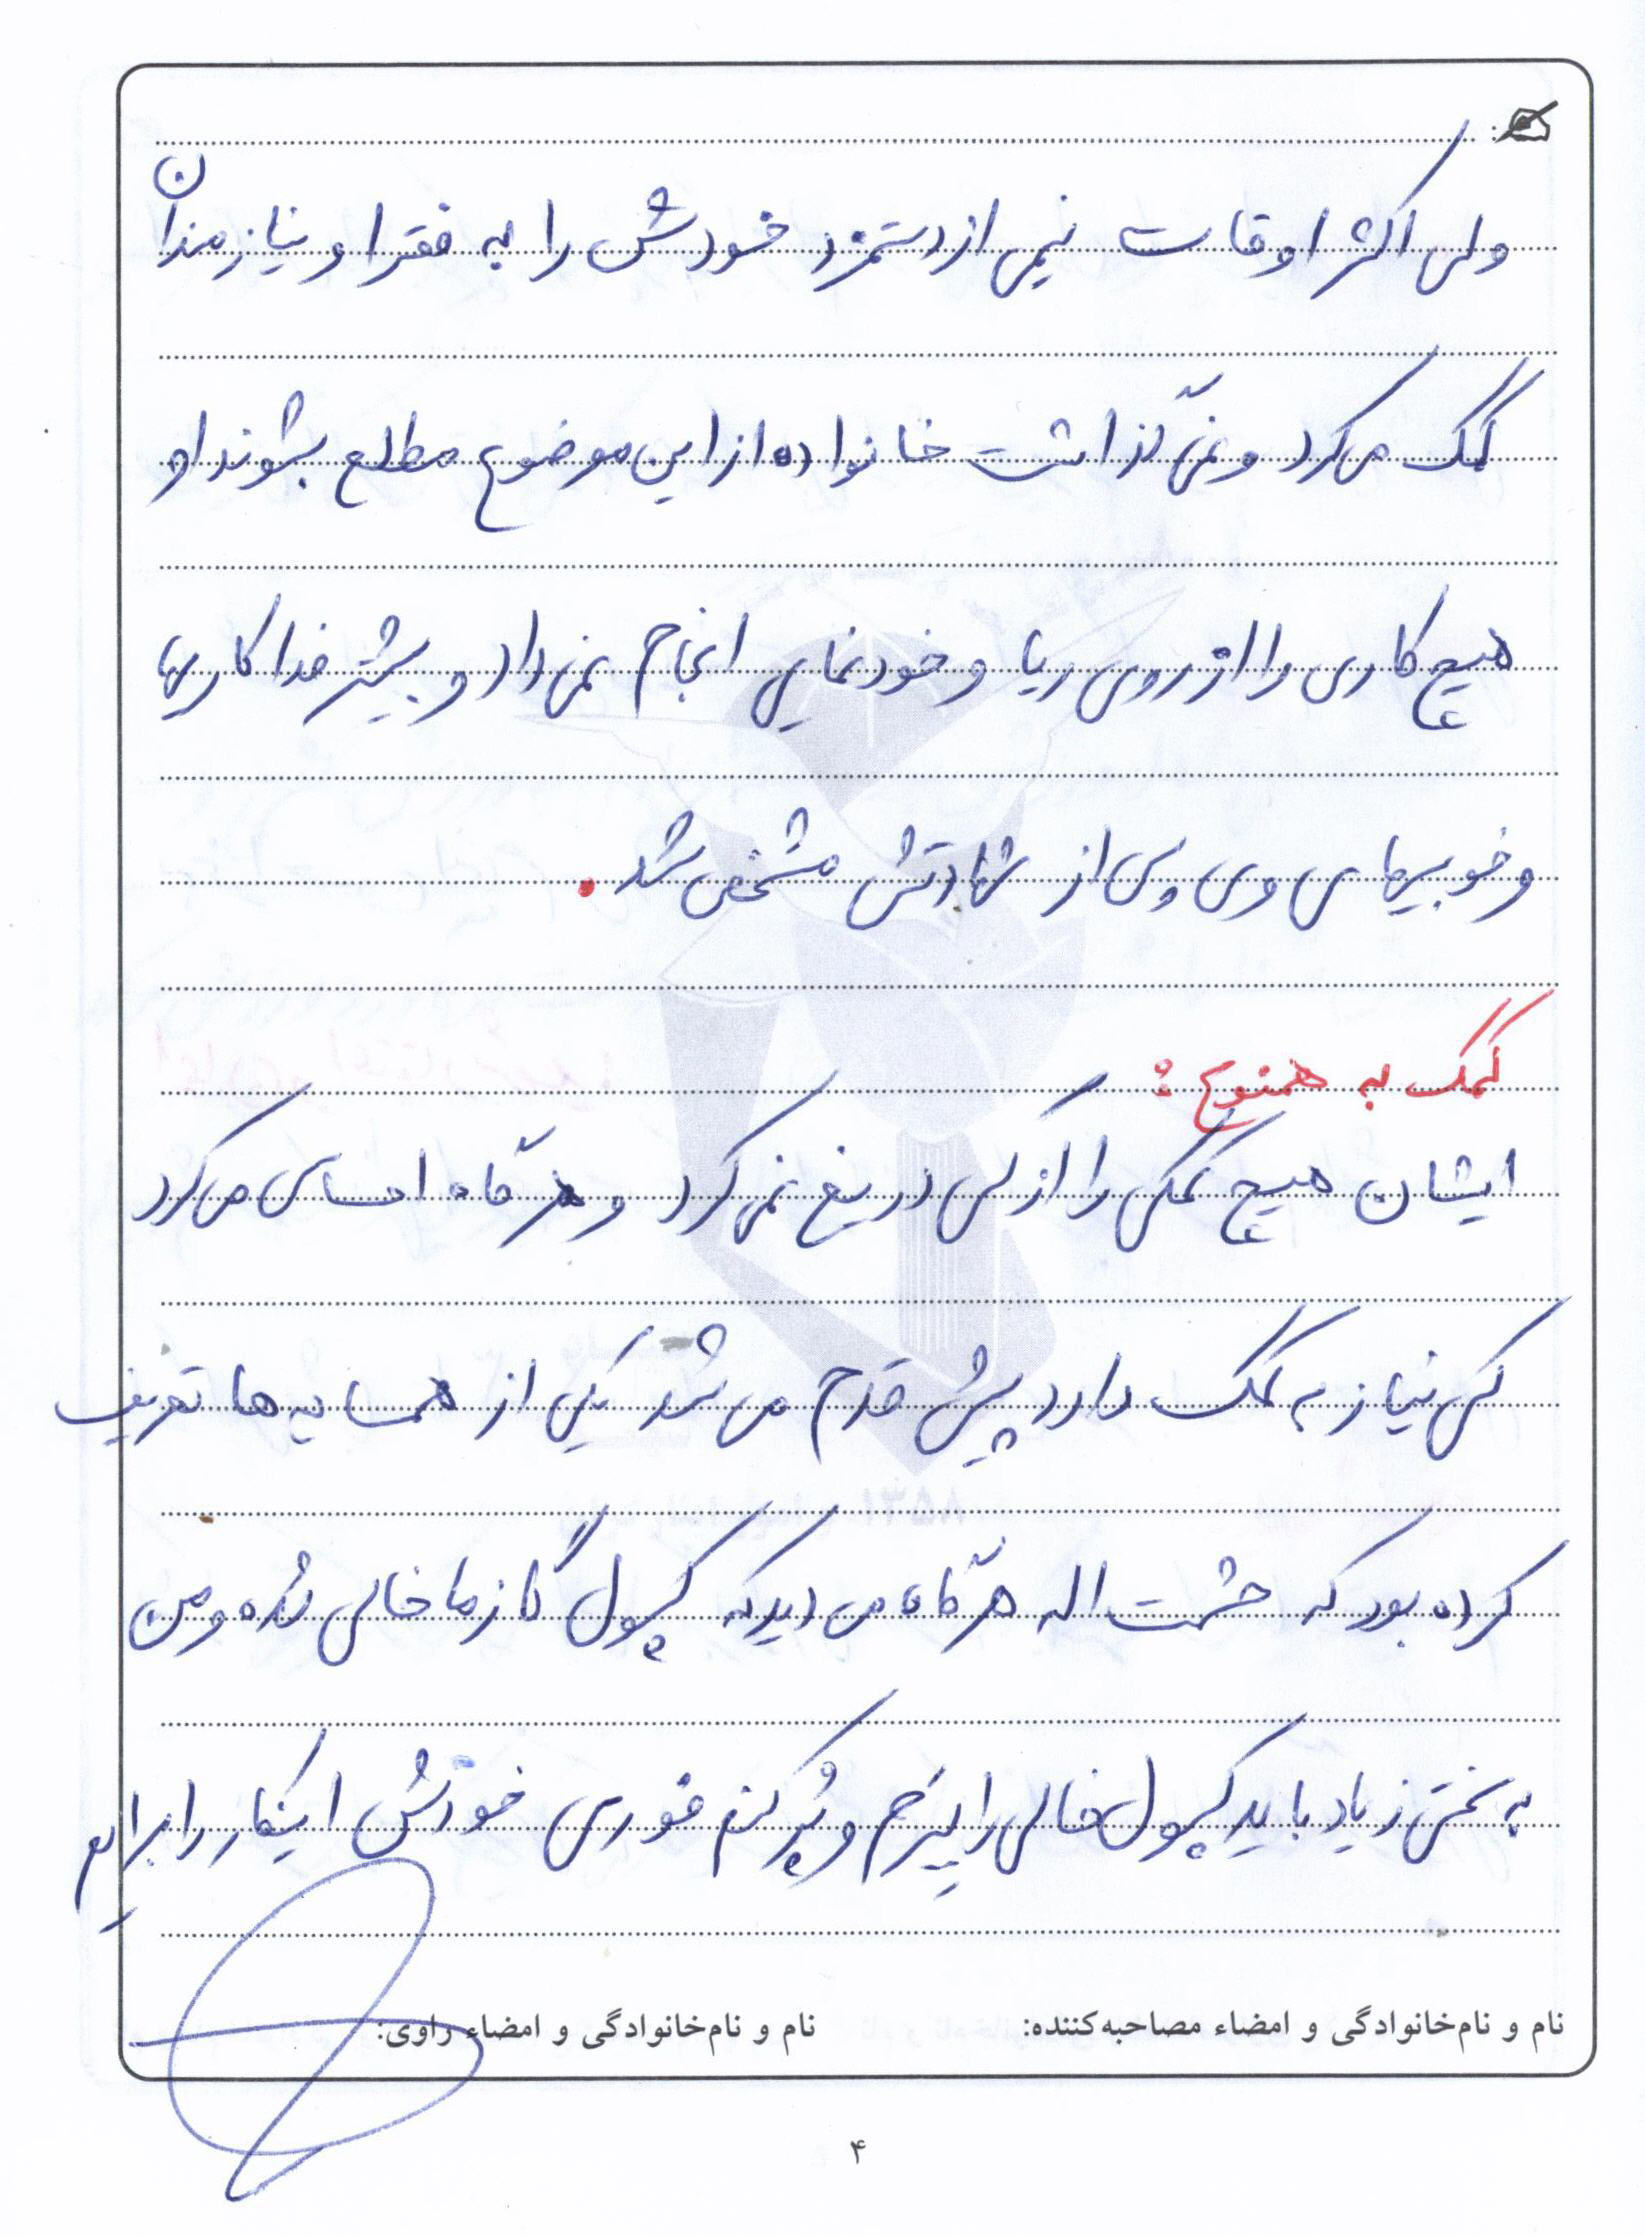 ولی اکثر اوقات نیمی از دستمزد خودش را به فقرا و نیازمندان
کمک می کرد و نمی گذاشت خانواده از این موضوع مطلع بشوند او
هیچ کاری را از روی ریا و خودنمایی انجام نمی داد و بیشتر فداکاریها
و خوبیهای وی پس از شهادتش مشخص شد.
کمک به همنوع:
ایشان هیچ کمکی را از کسی دریغ نمی کرد و هرگاه احساس می کرد
کسی نیاز به کمک دارد پیش قدم می شد یکی از همسایه ها تعریف
کرده بود که حشمت اله هرگاه می دید که کپسول گاز ما خالی شده و من
به سختی زیاد باید کپسول خالی را ببرم و پُر کنم فوری خودش اینکار را برایم
نام و نام‌خانوادگی و امضاء مصاحبه‌کننده: نام و نام‌خانوادگی و امضاء راوی:
۴